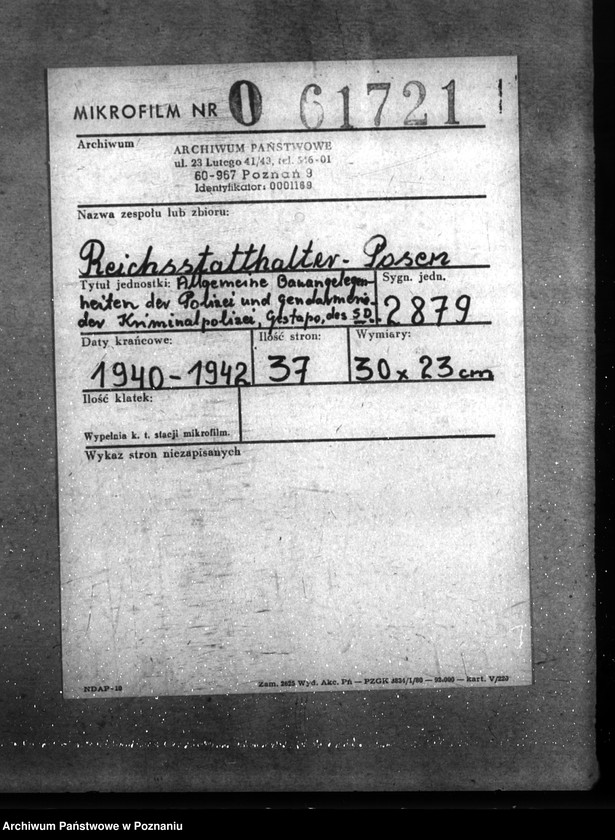 MIKROFILM NR O 61721
Archiwum
ARCHIWUM PAŃSTWOWE
ul. 23 Lutego 41/43, tel. 546-01
60-967 Poznań 9
Identyfikator: 0001189
Nazwa zespołu lub zbioru:
Reichsstatthalter - Posen
Tytuł jednostki: Allgemeine Bauangelegen-
heiten der Polizei und Gendarmerie,
der Kriminalpolizei, Gestapo, des SD.
Sygn. jedn.
2879
Daty krańcowe:
1940-1942
Ilość stron:
37
Wymiary:
30 x 23 cm
Ilość klatek:
Wypełnia k. t. stacji mikrofilm.
Wykaz stron niezapisanych
NDAP-18
Zam. Wyd. Akc. Pń — PZGK — kart. V/220
Archiwum Państwowe w Poznaniu